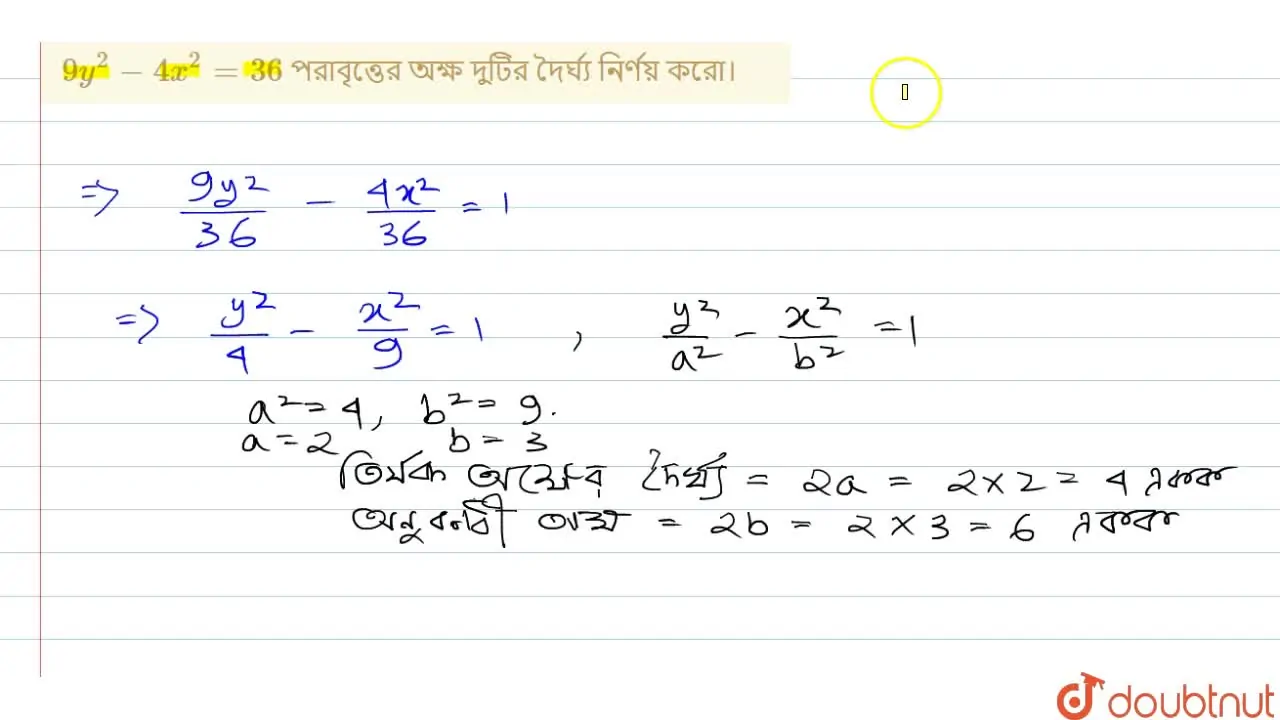 9y² − 4x² = 36 পরাবৃত্তের অক্ষ দুটির দৈর্ঘ্য নির্ণয় করো।
=> 9y²/36 − 4x²/36 = 1
=> y²/4 − x²/9 = 1 , y²/a² − x²/b² = 1
a² = 4, b² = 9.
a = 2 b = 3
তির্যক অক্ষের দৈর্ঘ্য = 2a = 2 × 2 = 4 একক
অনুবন্ধী অক্ষ = 2b = 2 × 3 = 6 একক
doubtnut